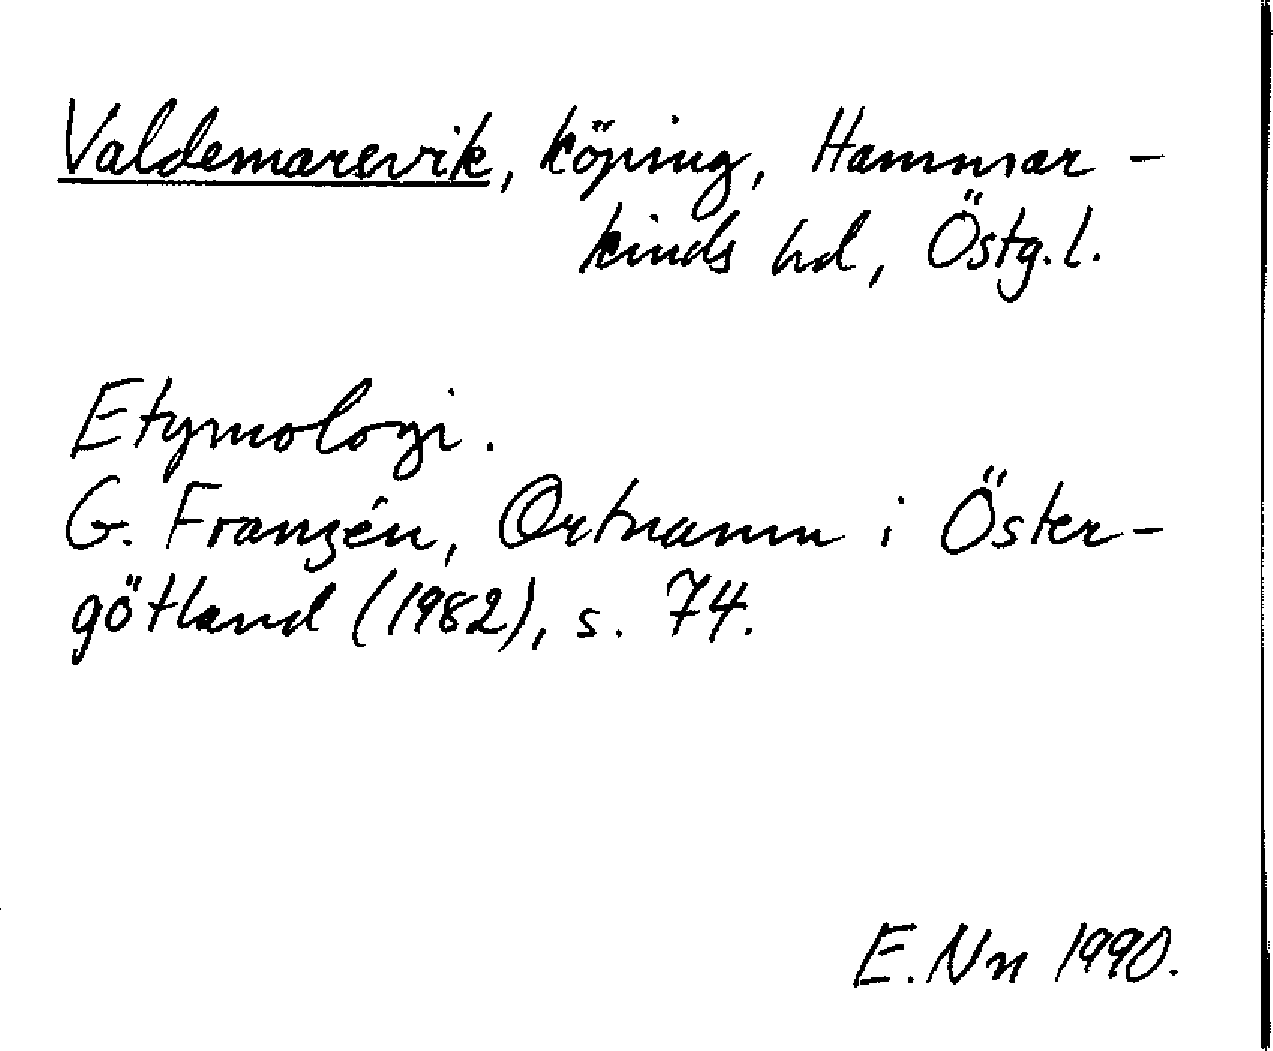 Valdemarsvik, köping, Hammar-
kinds hd, Östg.l.
Etymologi.
G. Franzén, Ortnamn i Öster-
götland (1982), s. 74.
E. Nn 1990.